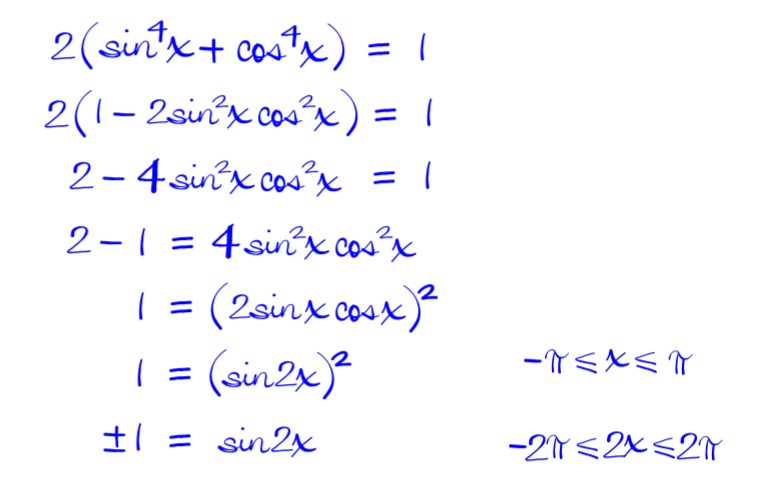 2(sin⁴x + cos⁴x) = 1
2(1 − 2sin²x cos²x) = 1
2 − 4sin²x cos²x = 1
2 − 1 = 4sin²x cos²x
1 = (2sinx cosx)²
1 = (sin2x)²
−π ≤ x ≤ π
±1 = sin2x
−2π ≤ 2x ≤ 2π